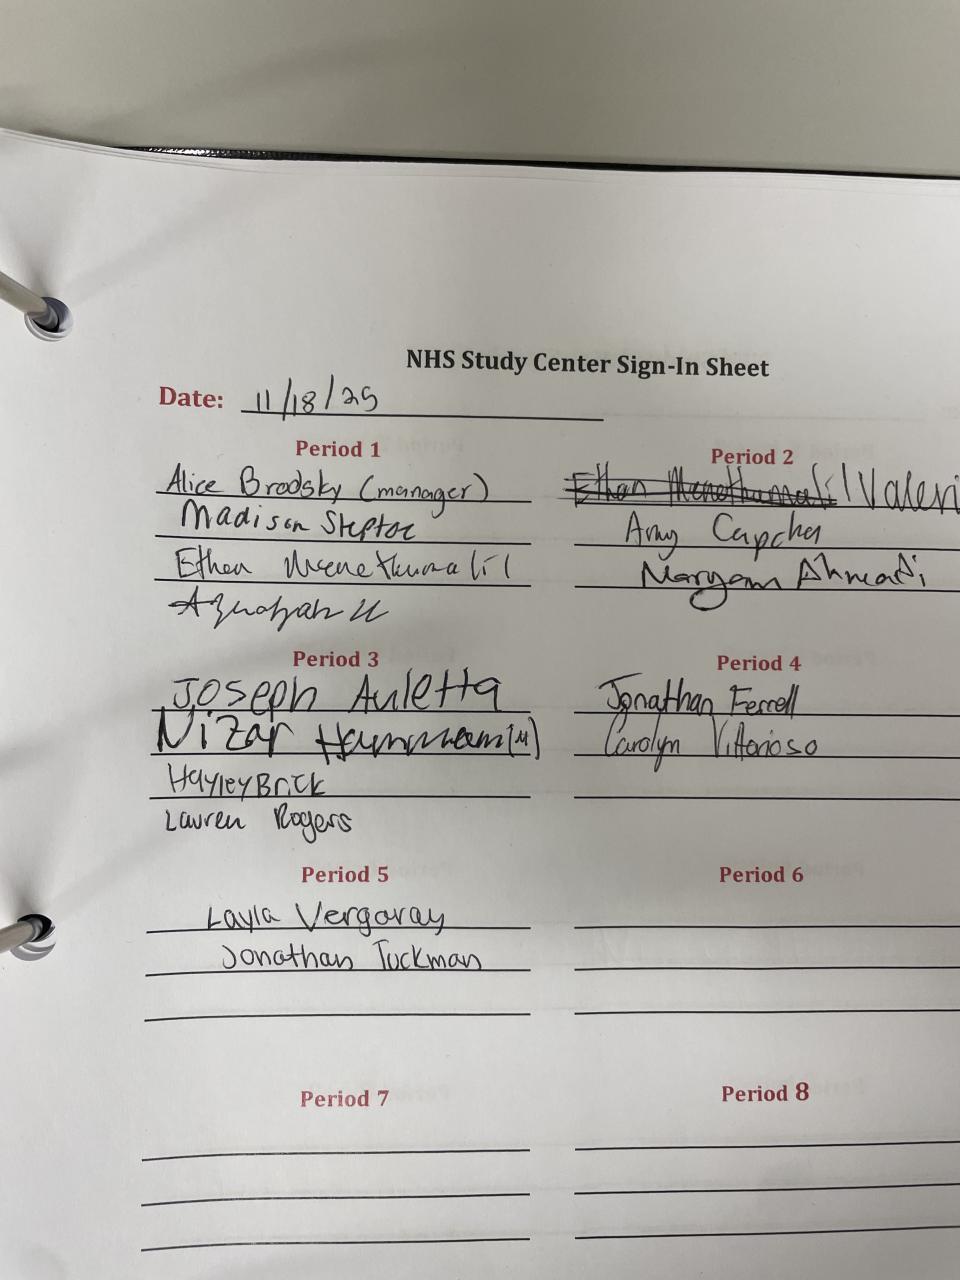 NHS Study Center Sign-In Sheet
Date: 11/18/25
Period 1
Alice Brodsky (manager)
Madison Steptoe
Ethan Meenethumalil
Period 2
Ethan
Amy Capcha
Maryam Ahmadi
Period 3
Joseph Auletta
Nizar Hammam (M)
Hayley Brick
Lauren Rogers
Period 4
Jonathan Ferrell
Carolyn Vittorioso
Period 5
Layla Vergaray
Jonathan Tuckman
Period 6
Period 7
Period 8